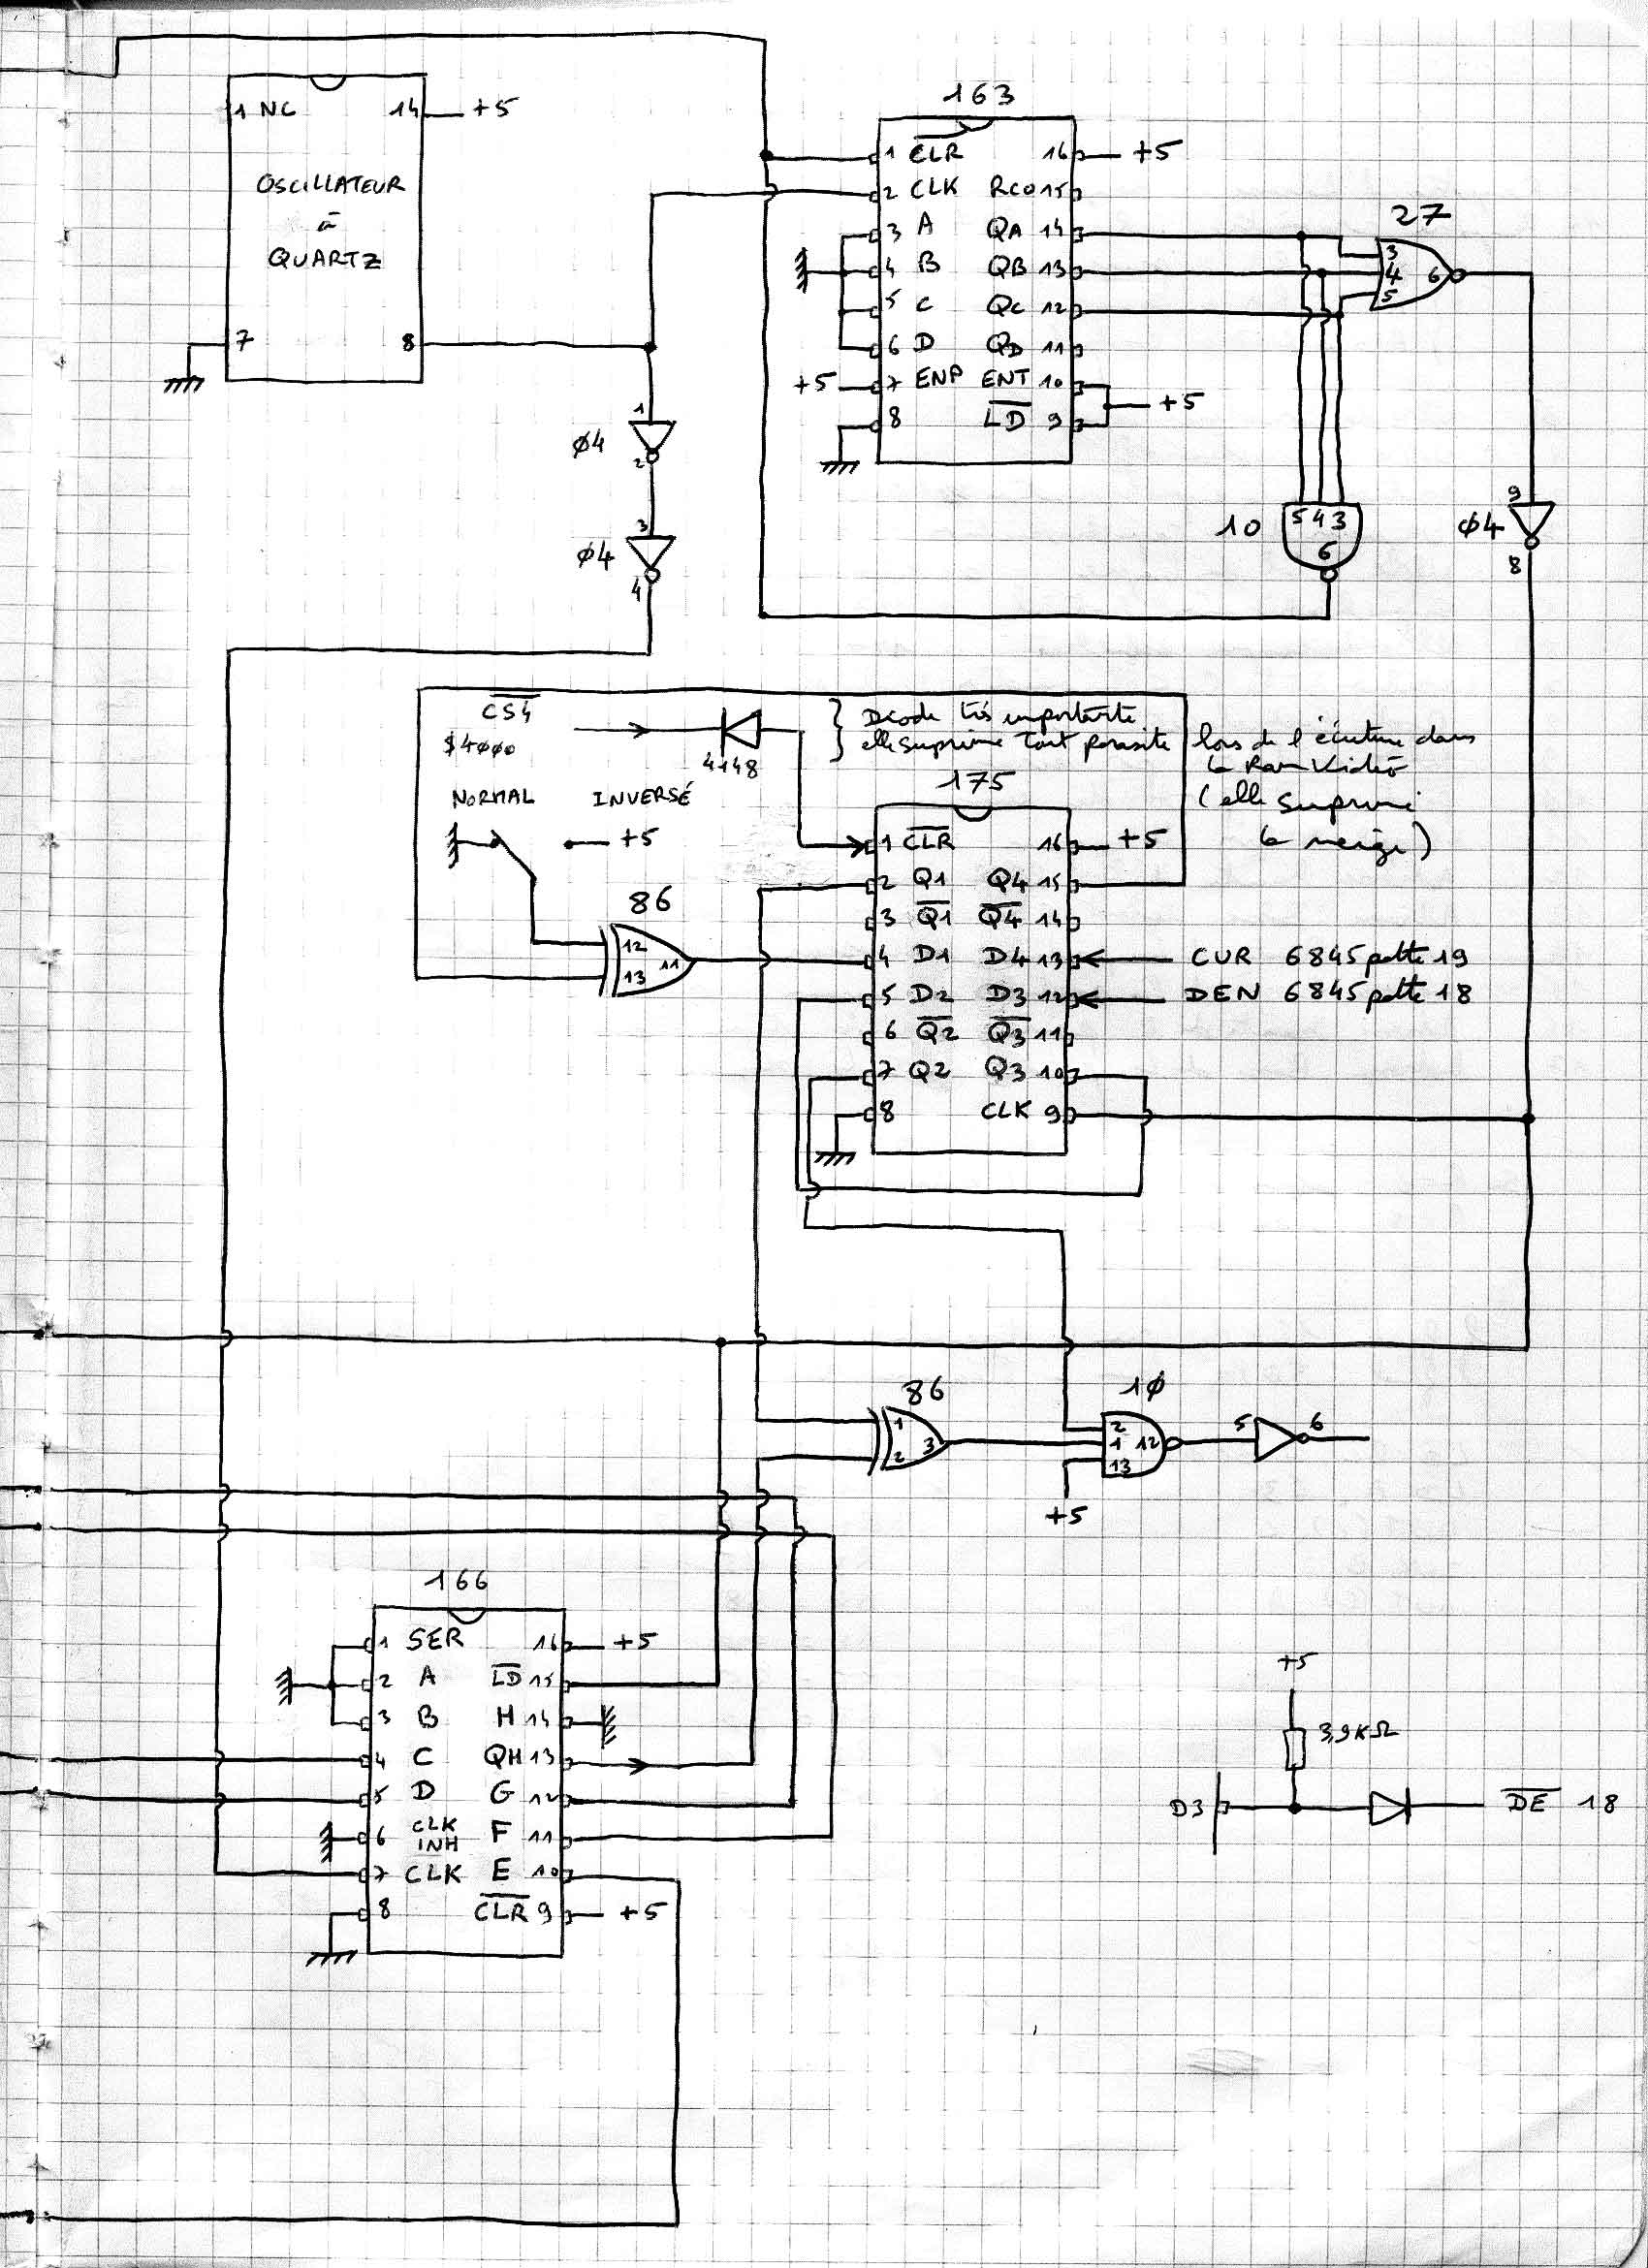 163
1 NC 14 +5
OSCILLATEUR
à
QUARTZ
7 8
1 CLR 16 +5
2 CLK RCO 15
3 A QA 14
4 B QB 13
5 C QC 12
6 D QD 11
+5 7 ENP ENT 10
8 LD 9 +5
27
3
4 6
5
1
ø4
2
3
ø4
4
10 5 4 3
6
9
ø4
8
CS4
$4øøø
4148
} Diode très importante
} elle suprime tout parasite lors de l'écriture dans
la Ram Vidéo
(elle suprime
la neige)
NORMAL INVERSÉ
+5
86
12
13 11
175
1 CLR 16 +5
2 Q1 Q4 15
3 Q1 Q4 14
4 D1 D4 13 CUR 6845 patte 19
5 D2 D3 12 DEN 6845 patte 18
6 Q2 Q3 11
7 Q2 Q3 10
8 CLK 9
86
1
2 3
1ø
2
1 12
13
+5
5 6
166
1 SER 16 +5
2 A LD 15
3 B H 14
4 C QH 13
5 D G 12
6 CLK INH F 11
7 CLK E 10
8 CLR 9 +5
+5
3,9KΩ
D3 DE 18